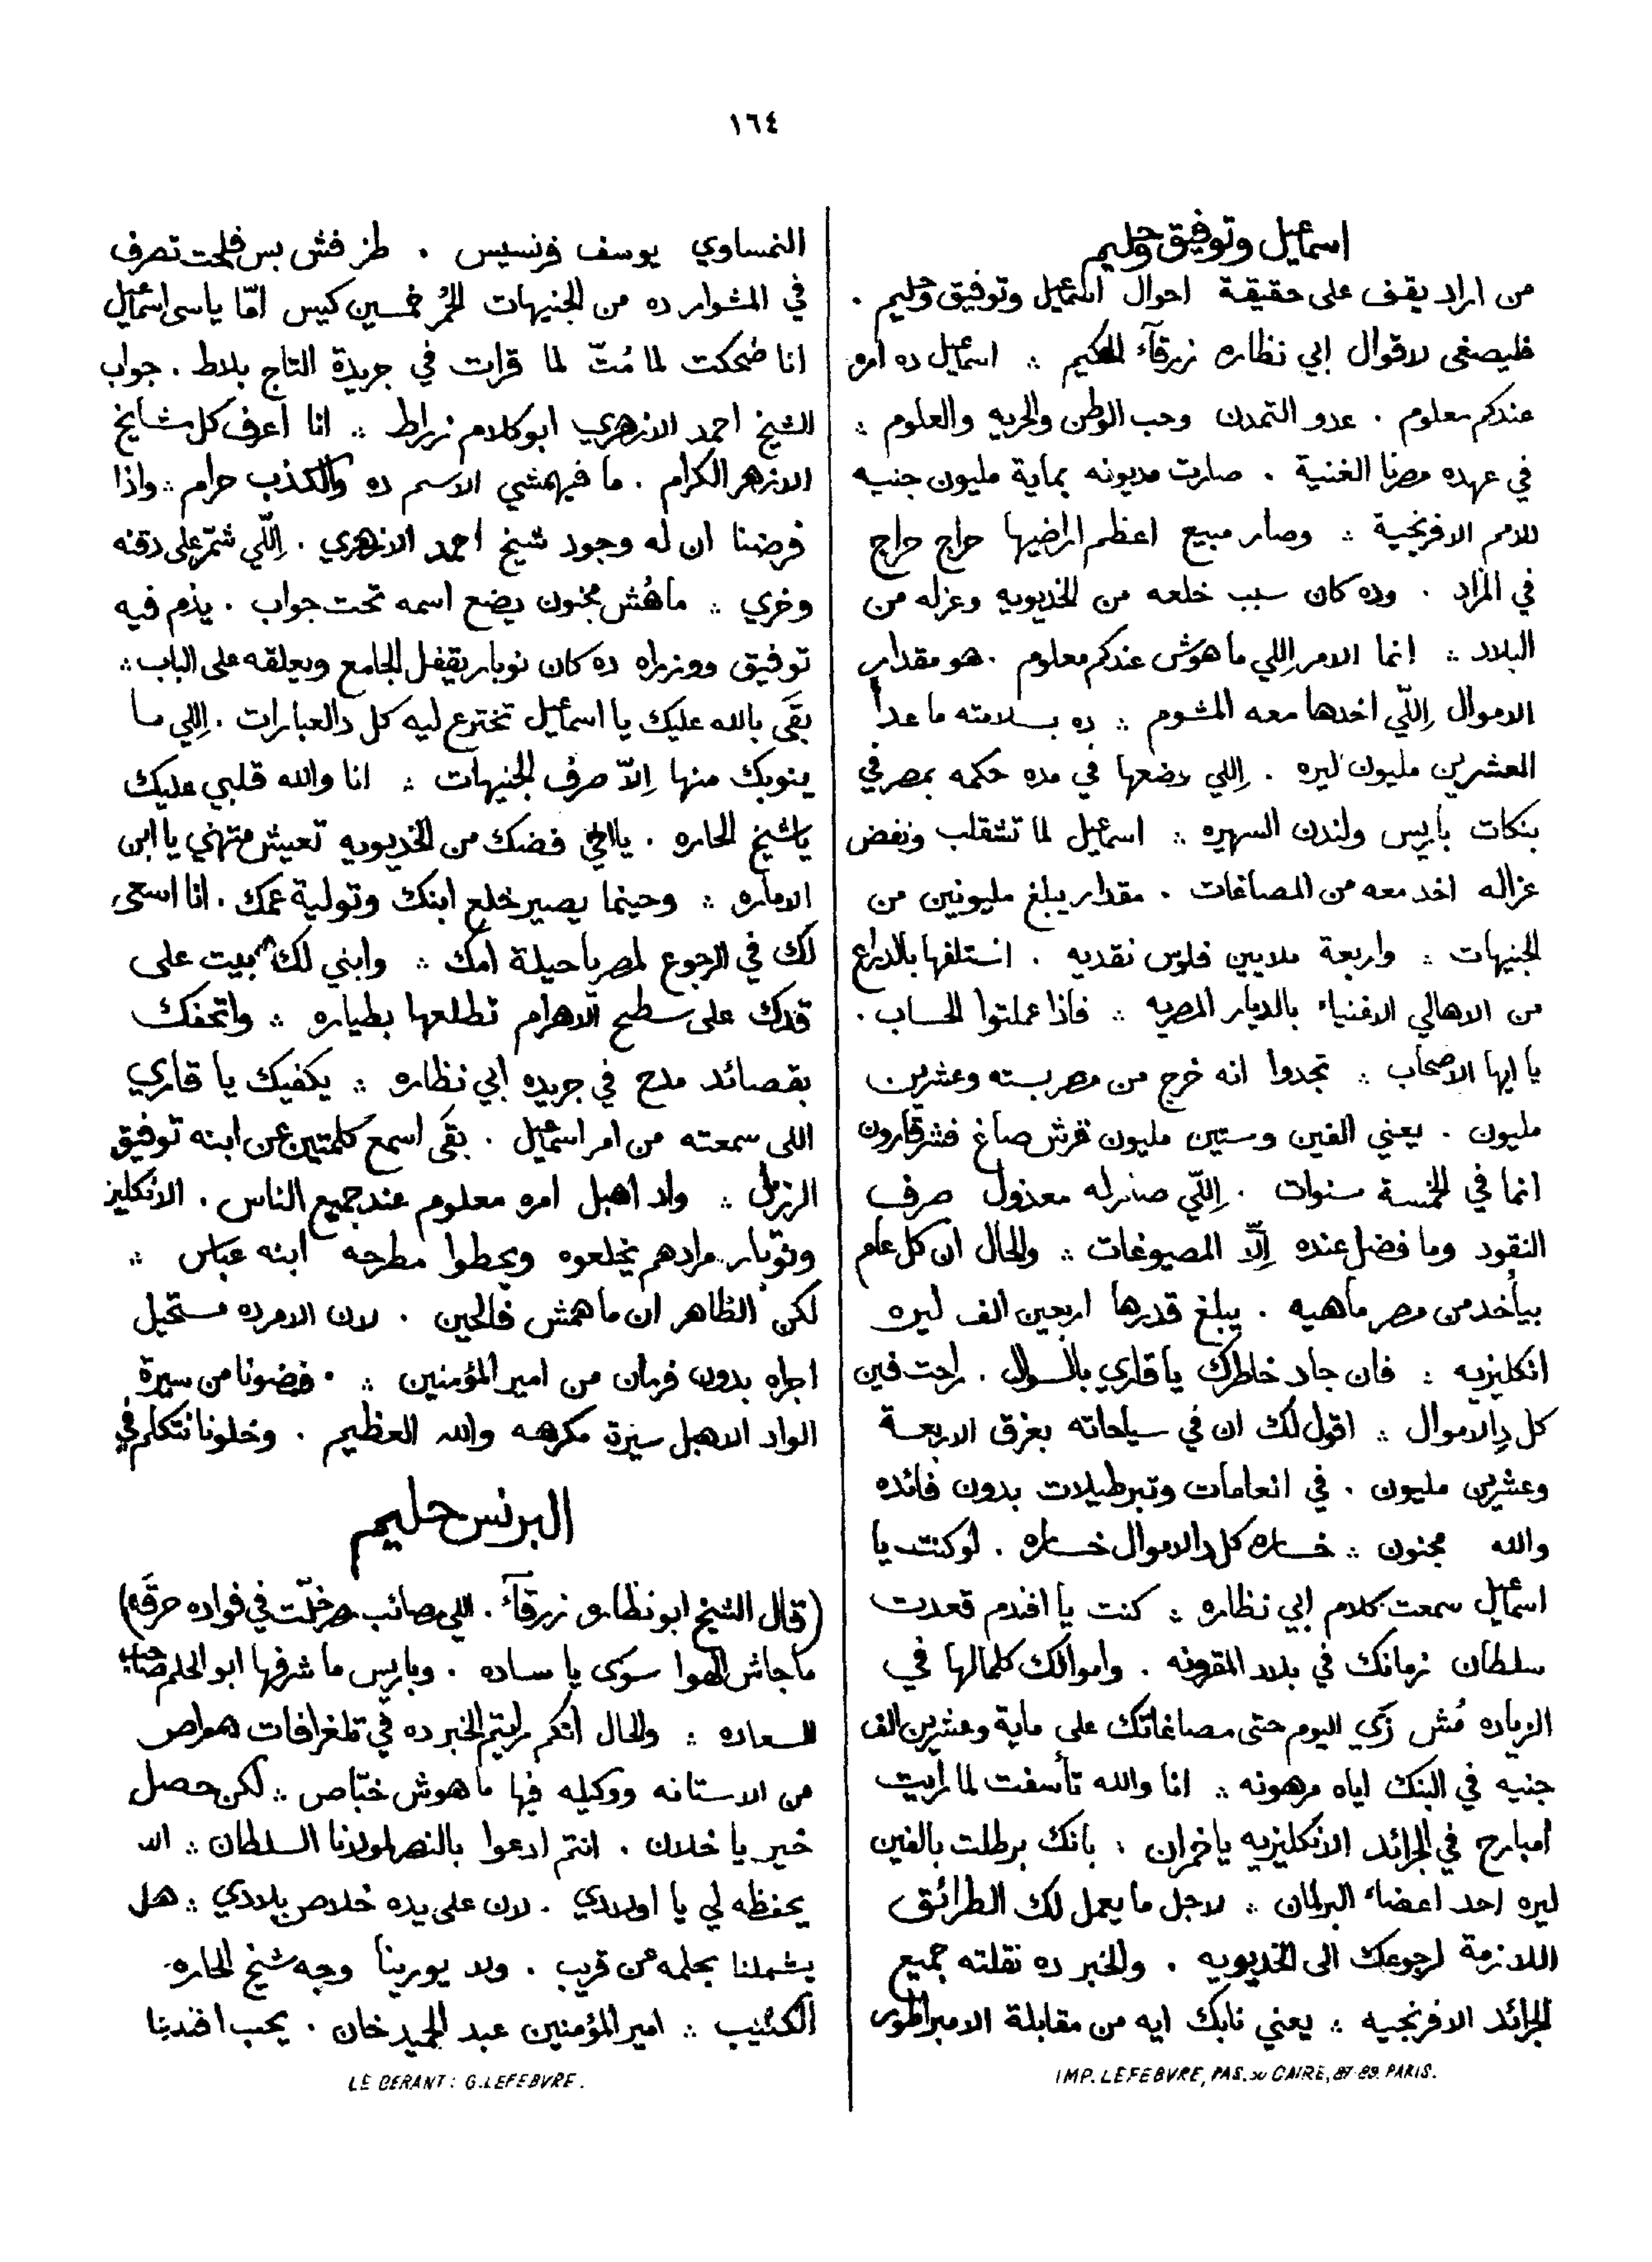 ١٦٤
اسماعيل وتوفيق وحليم
من اراد يقف على حقيقة احوال اسماعيل وتوفيق وحليم .
فليصغى لاقوال ابي نظاره زرقآء الحكيم ⁖ اسماعيل ده امره
عندكم معلوم . عدو التمدن وحب الوطن والحريه والعلوم ⁖
في عهده مصرنا الغنية . صارت مديونه بماية مليون جنيه
للامم الافرنجية ⁖ وصار مبيع اعظم اراضيها حراج حراج
في المزاد . وده كان سبب خلعه من الخديويه وعزله من
البلاد ⁖ انما الامر اللي ما هوش عندكم معلوم . هو مقدار
الاموال اِللّي اخدها معه المشوم ⁖ ده بسلامته ما عدا
العشرين مليون ليره . اِللي وضعها في مده حكمه بمصر في
بنكات باريس ولندن الشهيره ⁖ اسماعيل لما تشقلب ونفض
عزاله اخد معه من المصاغات . مقدار يبلغ مليونين من
الجنيهات ⁖ واربعة ملايين فلوس نقديه . استلفها بالدراع
من الاهالي الاغنياء بالديار المصريه ⁖ فاذا عملتوا الحساب .
يا ايها الاصحاب ⁖ تجدوا انه خرج من مصر بسته وعشرين
مليون . يعني الفين وستين مليون قرش صاغ فشر قارون
انما في الخمسة سنوات . اِللّي صار له معذول صرف
النقود وما فضل عنده اِلاّ المصيوغات ⁖ والحال ان كل عام
بيأخد من مصر ماهيه . يبلغ قدرها اربعين الف ليره
انكليزيه ⁖ فان جاد خاطرك يا قاري بالسوال . راحت فين
كل دِالاموال ⁖ اقول لك ان في سياحاته بعزق الاربعة
وعشرين مليون . في انعامات وتبرطيلات بدون فائده
والله مجنون ⁖ خساره كل دالاموال خساره . لو كنت يا
اسماعيل سمعت كلام ابي نظاره ⁖ كنت يا افندم قعدت
سلطان زمانك في بلاد المقرونه . واموالك كلمالها في
الزياده مُش زَي اليوم حتى مصاغاتك على ماية وعشرين الف
جنيه في البنك اياه مرهونه ⁖ انا والله تأسفت لما رأيت
امبارح في الجرائد الانكليزيه ياخمران ⁖ بانك برطلت بالفين
ليره احد اعضاء البرلمان ⁖ لاجل ما يعمل لك الطرائق
اللازمة لرجوعك الى الخديويه . والخبر ده نقلته جميع
الجرائد الافرنجيه ⁖ يعني نابك ايه من مقابلة الامبراطور
IMP. LEFEBVRE, PAS. DU CAIRE, 87-89. PARIS.
النمساوي يوسف فرنسيس . طز فش بس فلحت تصرف
في المشوار ده من الجنيهات الحُمر خمسين كيس امّا ياسى اسماعيل
انا ضحكت لما مُتّ لما قرات في جريدة التاج بلاط . جواب
الشيخ احمد الازهري ابو كلام زراط ⁖ انا اعرف كل مشايخ
الازهر الكرام . ما فيهمشي الاسم ده والكذب حرام ⁖ واذا
فرضنا ان له وجود شيخ احمد الازهري . اِللّي شمّر على دقنه
وخري ⁖ ماهُش مجنون يضع اسمه تحت جواب . يذم فيه
توفيق ووزراه ده كان نوبار يقفل الجامع ويعلقه على الباب ⁖
بقَى بالله عليك يا اسماعيل تخترع ليه كل دالعبارات . اِللي ما
ينوبك منها اِلاّ صرف الجنيهات ⁖ انا والله قلبي عليك
يا شيخ الحاره . يا اخي فضك من الخديويه تعيش متهني يا ابن
الاماره ⁖ وحينما يصير خلع ابنك وتولية عمك . انا اسعى
لك في الرجوع لمصر يا حيلة امك ⁖ وابني لك بيت على
قدك على سطح الاهرام تطلعها بطياره ⁖ واتحفك
بقصائد مدح في جريده ابي نظاره ⁖ يكفيك يا قاري
اللى سمعته من امر اسماعيل . بقَى اسمع كلمتين عن ابنه توفيق
الرزيل ⁖ واد اهبل امره معلوم عند جميع الناس . الانكليز
ونوبار مرادهم يخلعوه ويحطوا مطرحه ابنه عباس ⁖
لكن الظاهر ان ما همش فالحين . لان الامر ده مستحيل
اجراه بدون فرمان من امير المؤمنين ⁖ . فضونا من سيرة
الواد الاهبل سيرة مكرهه والله العظيم . وخلونا نتكلم في
البرنس حليم
(قال الشيخ ابو نظاره زرقآء . اللي مصائب مصر خلّت في فواده حرقَه)
ما جاش الهوا سوى يا ساده . وباريس ما شرفها ابو الحلم صاحب
السعاده ⁖ والحال انكم رايتم الخبر ده في تلغرافات هواص
من الاستانه ووكيله فيها ما هوش خبّاص ⁖ لكن حصل
خير يا خلان . انتم ادعوا بالنصر لمولانا السلطان ⁖ الله
يحفظه لي يا اولادي . لان على يده خلاص بلادي ⁖ هل
يشملنا بحلمه عن قريب . ولا يورينا وجه شيخ الحاره
الكئيب ⁖ امير المؤمنين عبد الحميد خان . يحب افندينا
LE GERANT: G. LEFEBVRE.